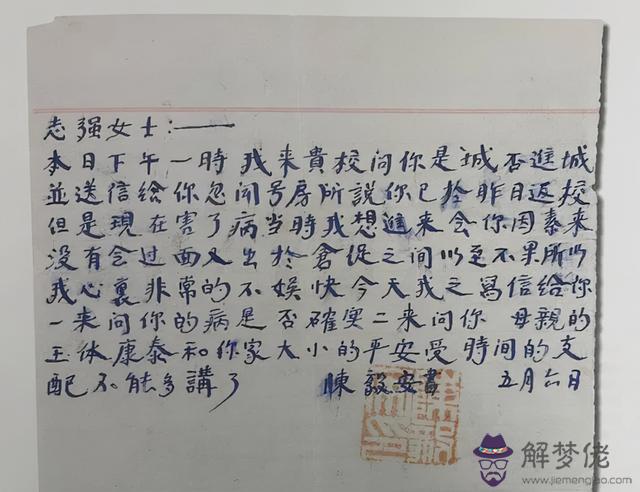 志强女士:——
本日下午一時我来貴校问你是城否進城
並送信给你忽闻号房所説你已於昨日返校
但是現在害了病当時我想進来会你因素来
没有会过面又出於倉促之间以至不果所以
我心裏非常的不娱快今天我之寫信给你
一来问你的病是否確实二来问你 母親的
玉体康泰和你家大小的平安受時间的支
配不能多講了 陳毅安書 五月六日
解梦佬
www.jiemenglao.com